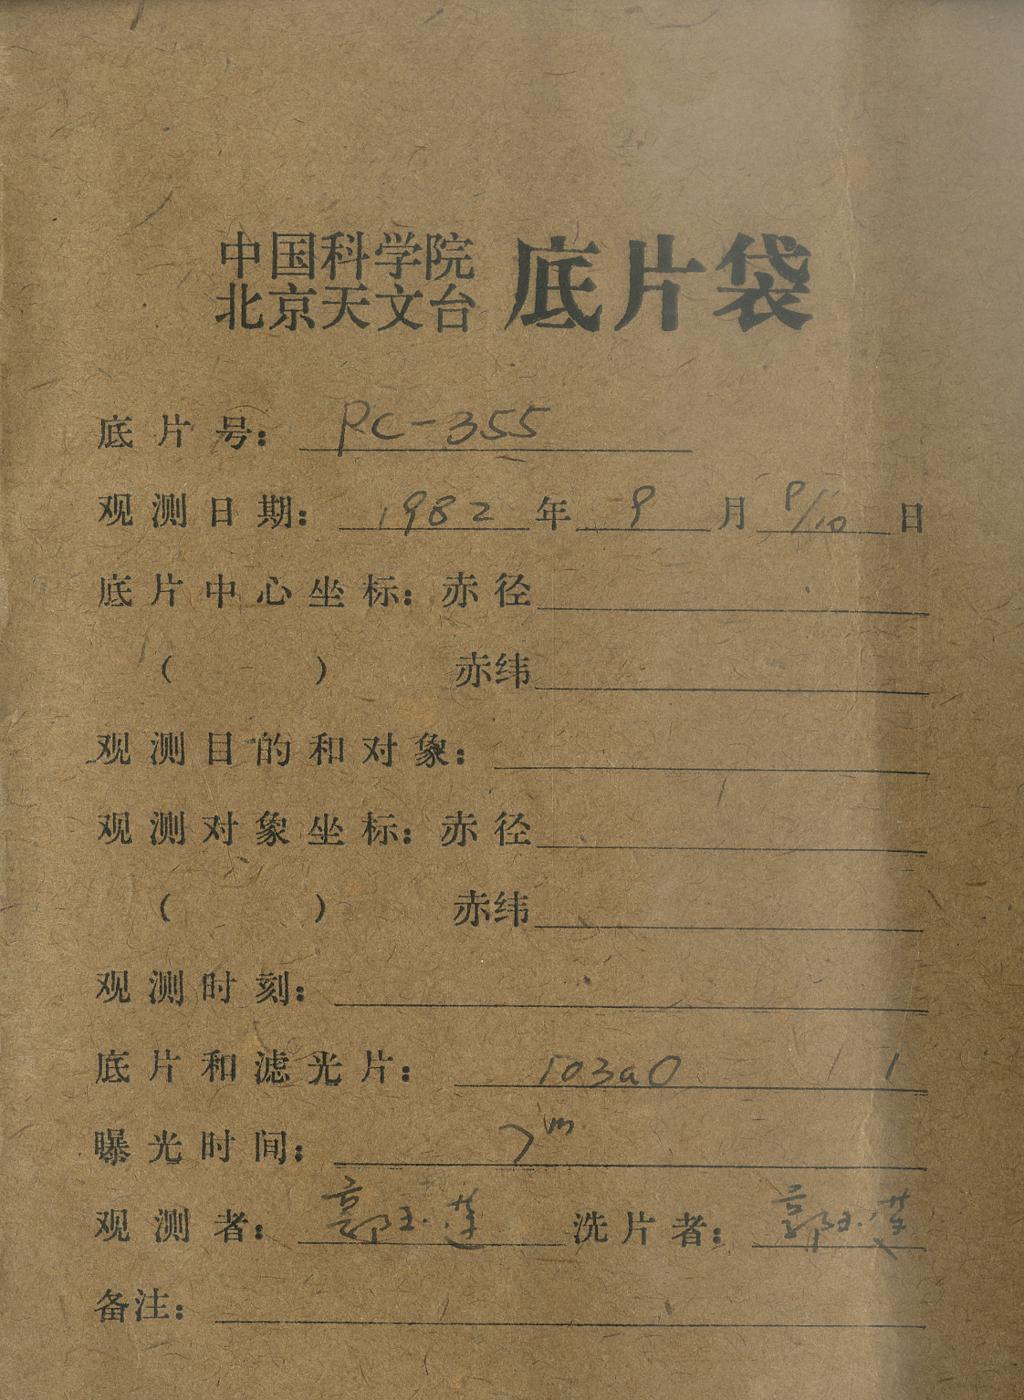 中国科学院
北京天文台 底片袋
底片号: PC-355
观测日期: 1982 年 9 月 9/10 日
底片中心坐标: 赤径
( ) 赤纬
观测目的和对象:
观测对象坐标: 赤径
( ) 赤纬
观测时刻:
底片和滤光片: 103aO
曝光时间: 7m
观测者: 郭玉莲 洗片者: 郭玉莲
备注: